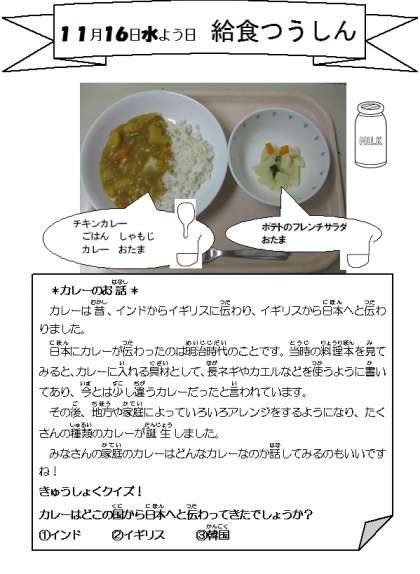 11月16日水よう日　給食つうしん
MILK
チキンカレー
ごはん　しゃもじ
カレー　おたま
ポテトのフレンチサラダ
おたま
＊カレーのお話＊
カレーは昔、インドからイギリスに伝わり、イギリスから日本へと伝わ
りました。
日本にカレーが伝わったのは明治時代のことです。当時の料理本を見て
みると、カレーに入れる具材として、長ネギやカエルなどを使うように書い
てあり、今とは少し違うカレーだったと言われています。
その後、地方や家庭によっていろいろアレンジをするようになり、たく
さんの種類のカレーが誕生しました。
みなさんの家庭のカレーはどんなカレーなのか話してみるのもいいです
ね！
きゅうしょくクイズ！
カレーはどこの国から日本へと伝わってきたでしょうか？
①インド　②イギリス　③韓国